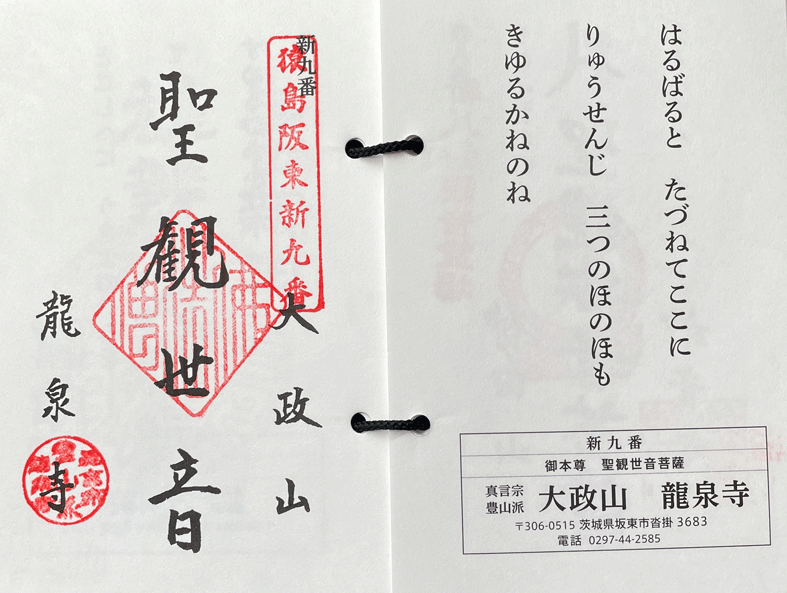 はるばると　たづねてここに
りゅうせんじ　三つのほのほも
きゆるかねのね
新九番
御本尊　聖観世音菩薩
真言宗
豊山派
大政山　龍泉寺
〒306-0515 茨城県坂東市沓掛 3683
電話 0297-44-2585
新九番
猿島阪東新九番
大政山
聖観世音
龍泉寺